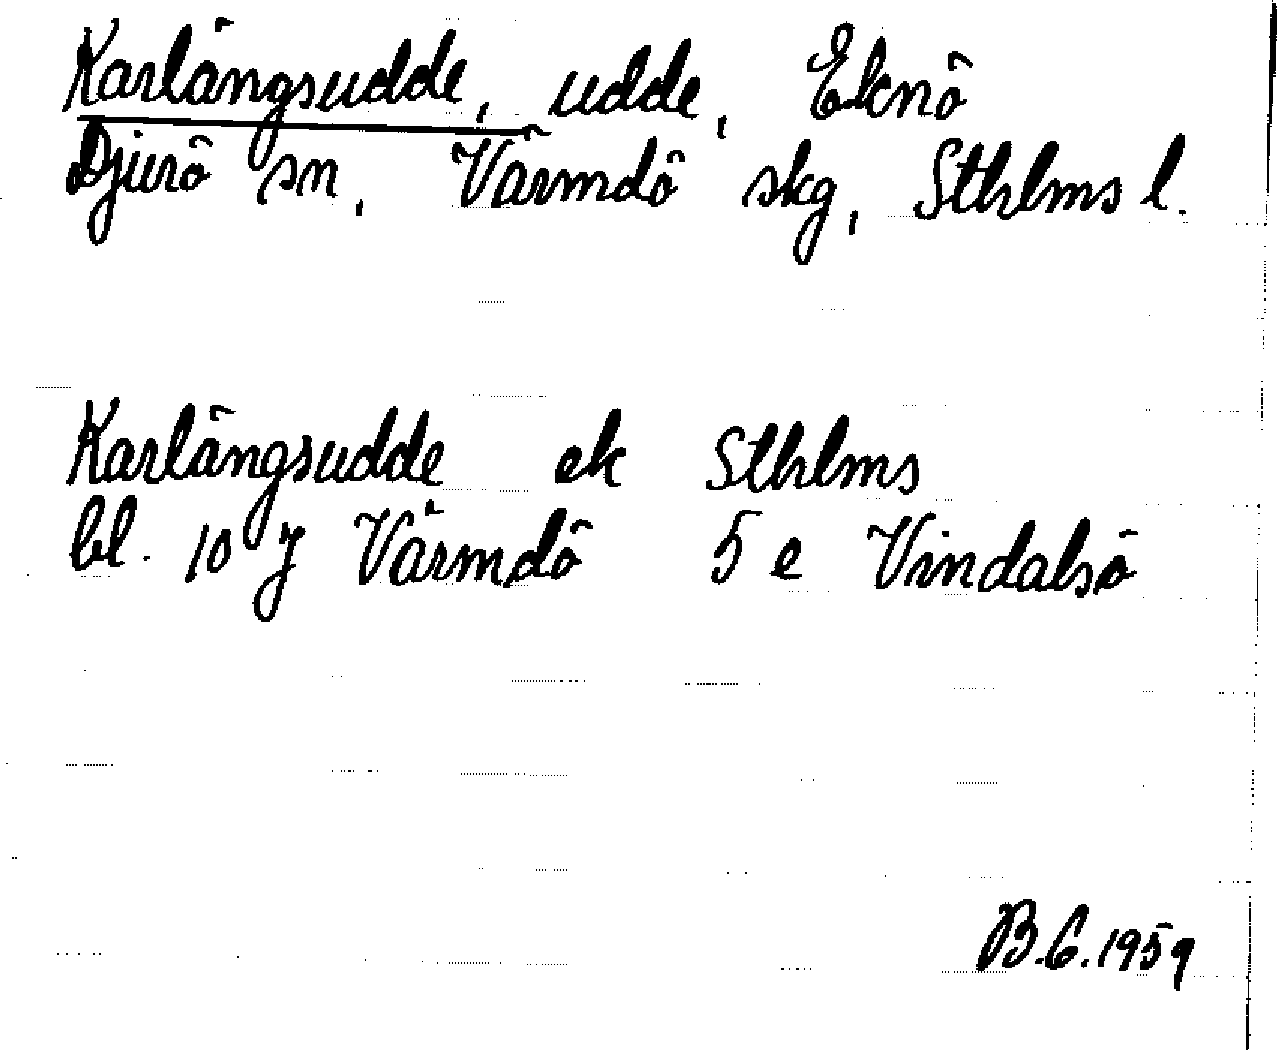 Karlängsudde, udde, Eknö
Djurö sn, Värmdö skg, Sthlms l.
Karlängsudde ek Sthlms
bl. 10 J Värmdö 5 e Vindalsö
B.G. 1959